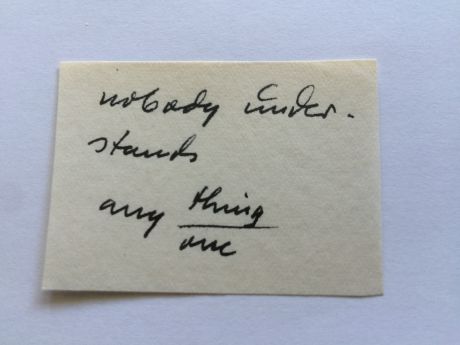 nobody under-
stands
any thing
one